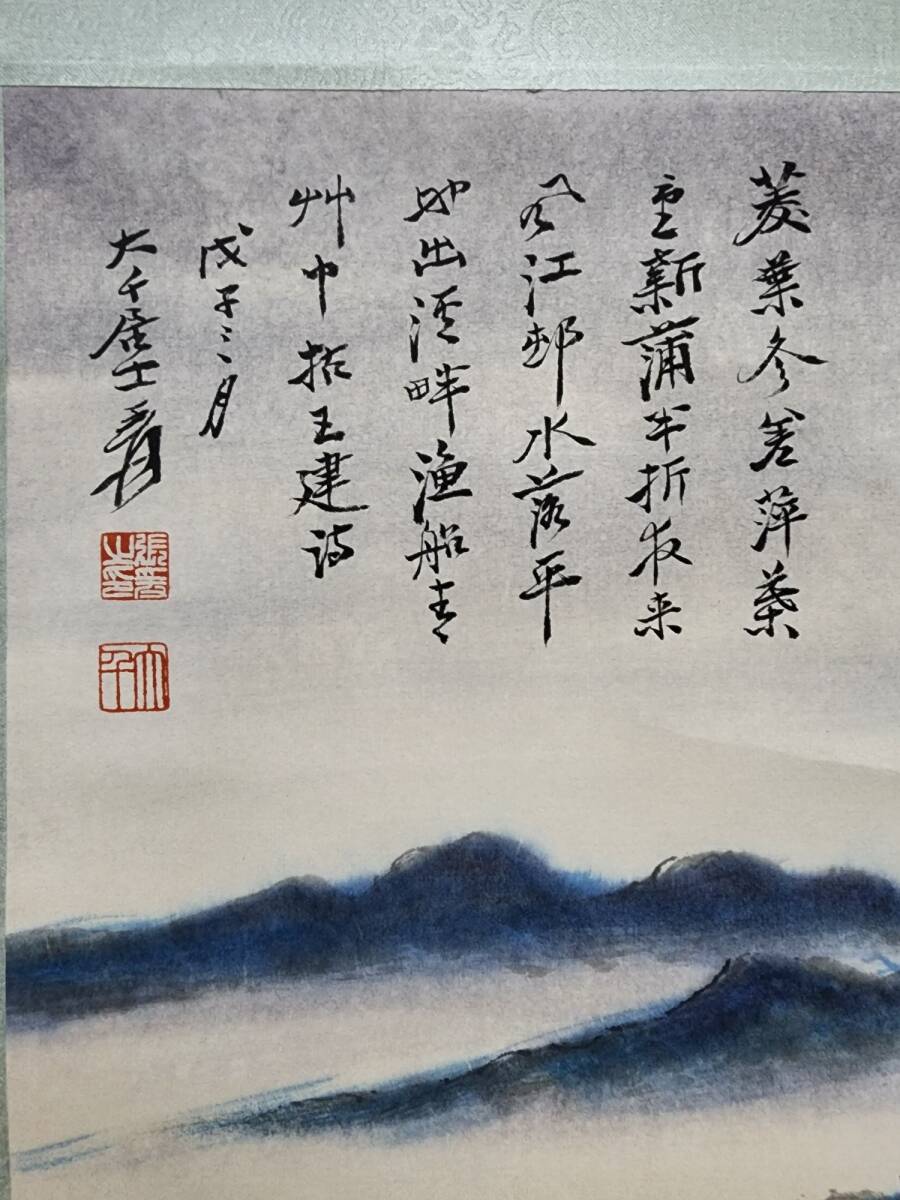 菱葉參差萍葉
重新蒲半折夜来
風江邨水落平
地出溪畔漁船青
艸中拈王建詩
戊子三月
大千居士爰
張爰之印
大千